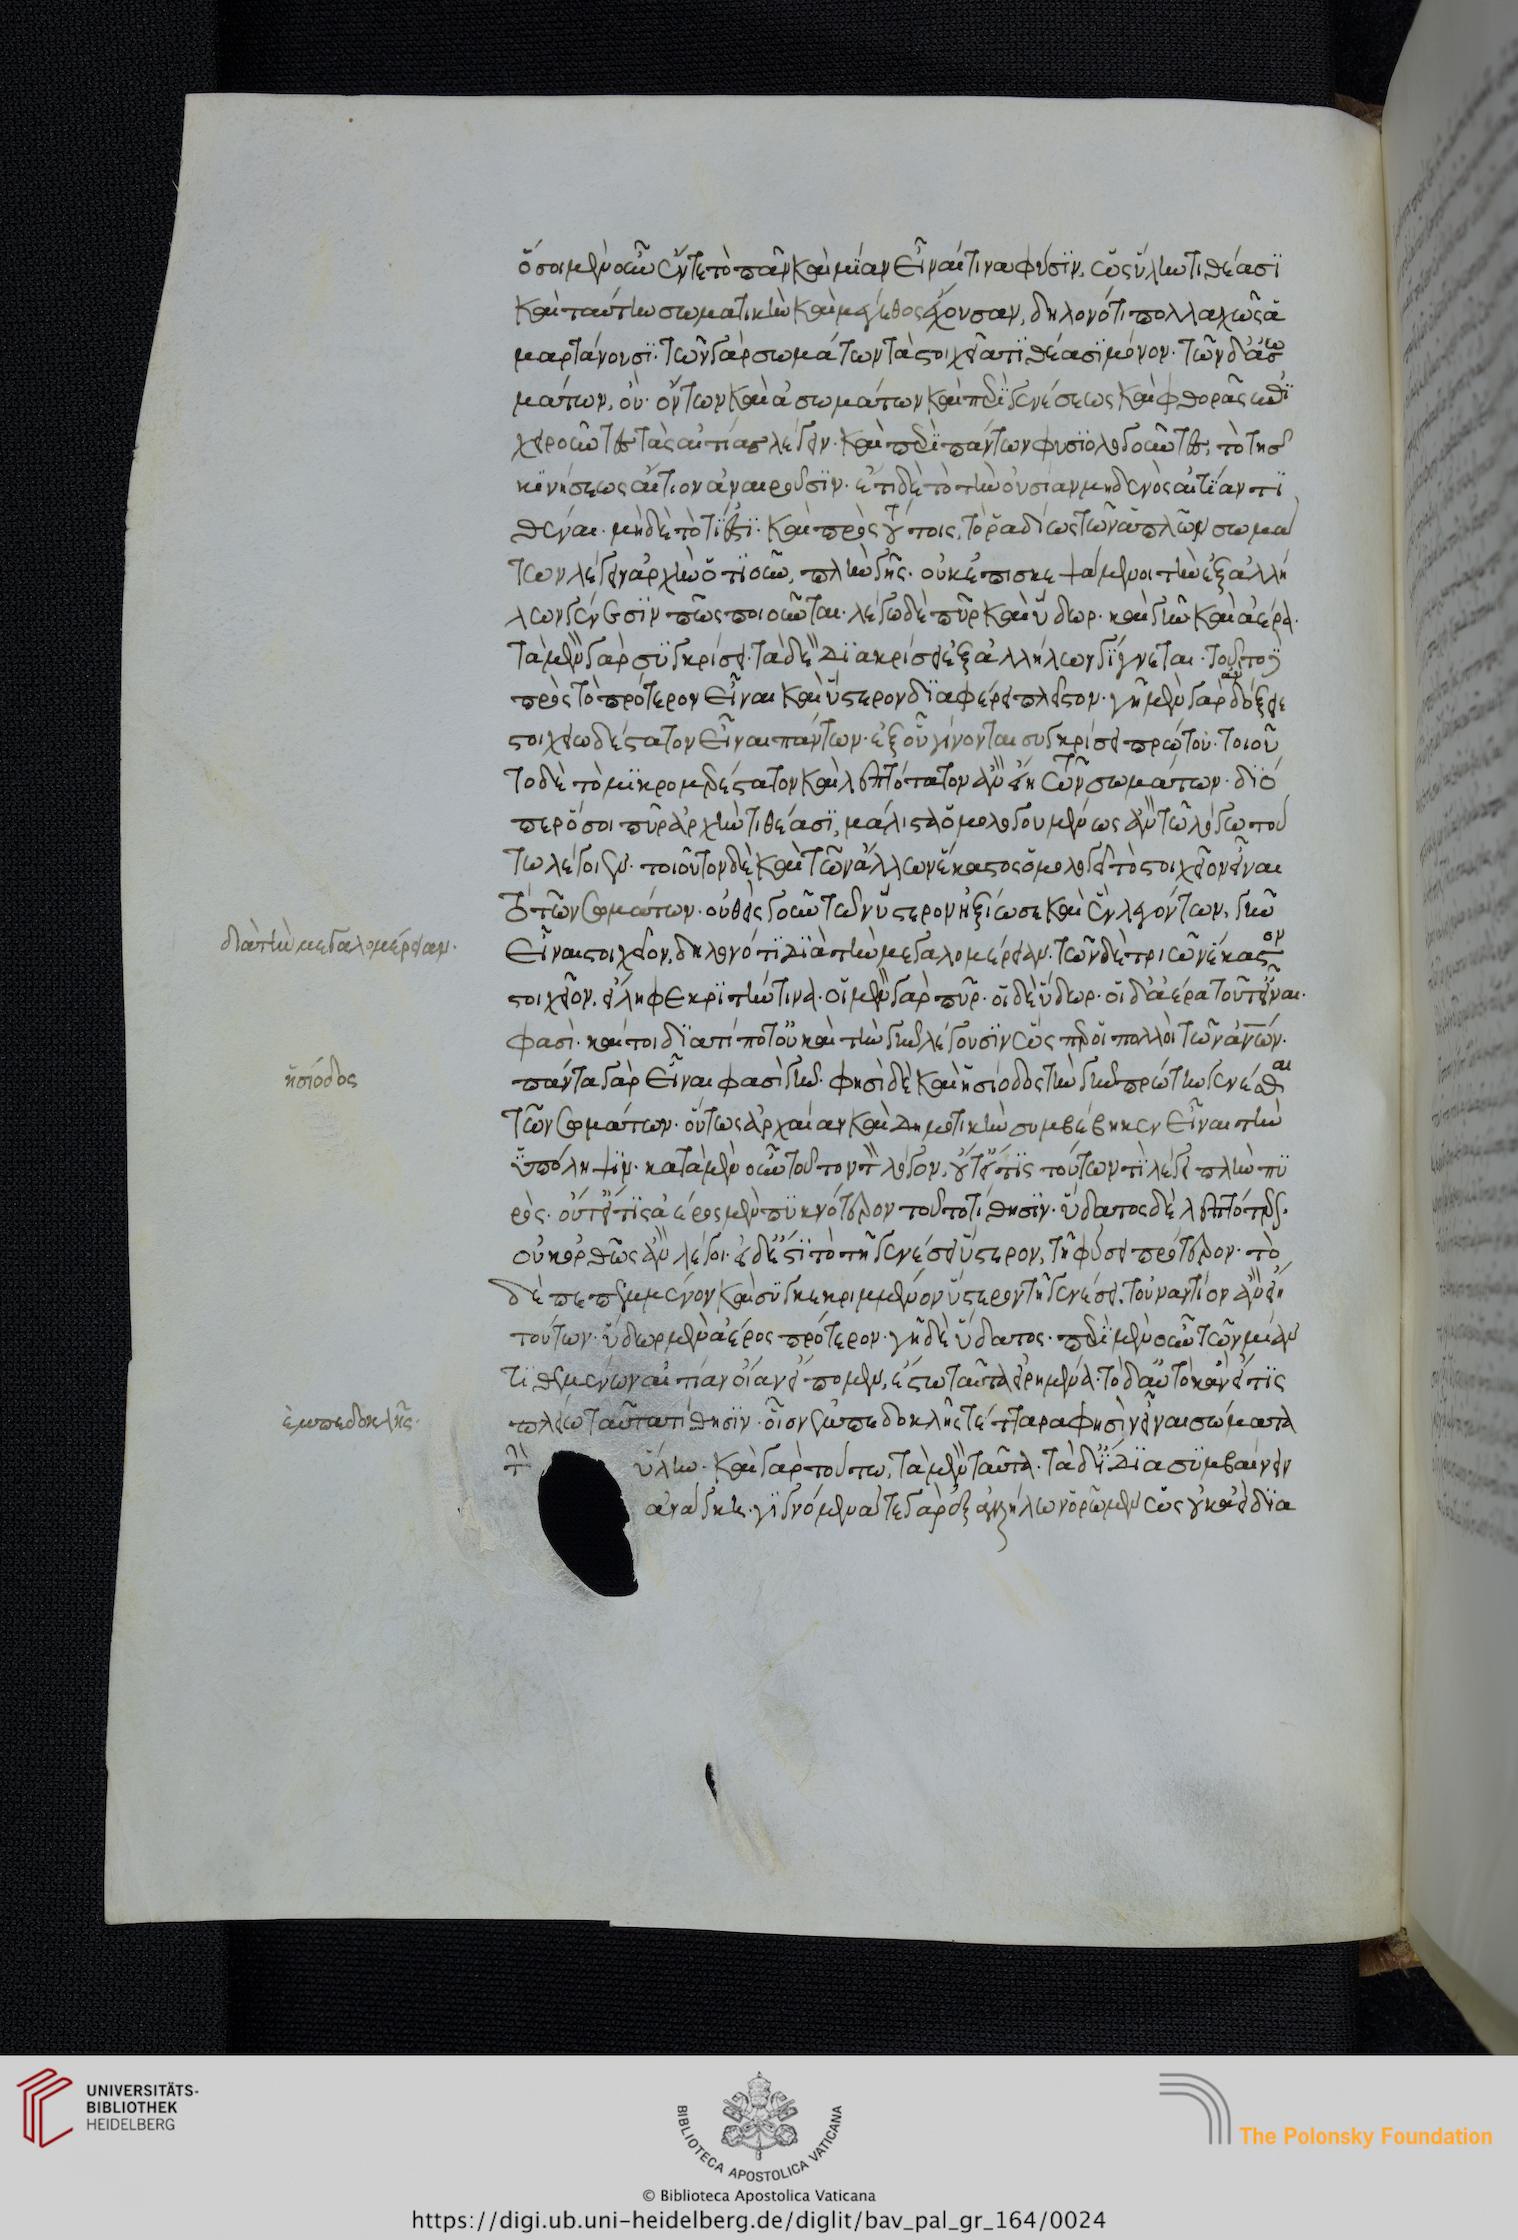 ὅσοι μὲν οὖν ἕν τε τὸ πᾶν καὶ μίαν εἶναί τινα φύσιν, ὡς ὕλην τιθέασι
καὶ ταύτην σωματικὴν καὶ μέγεθος ἔχουσαν, δηλονότι πολλαχῶς ἁ
μαρτάνουσι. τῶν γὰρ σωμάτων τὰ στοιχεῖα τιθέασι μόνον. τῶν δ' ἀσω
μάτων, οὐ. ὄντων καὶ ἀσωμάτων καὶ περὶ γενέσεως καὶ φθορᾶς ἐπι
χειροῦντες τὰς αἰτίας λέγειν. καὶ περὶ πάντων φυσιολογοῦντες, τὸ τῆς
κινήσεως αἴτιον ἀναιροῦσιν. ἔτι δὲ τὸ τὴν οὐσίαν μηδενὸς αἰτίαν τι
θέναι. μηδὲ τὸ τί ἐστι. καὶ πρὸς τούτοις, τὸ ῥαδίως τῶν ἁπλῶν σωμά
των λέγειν ἀρχὴν ὁτιοῦν, πλὴν γῆς. οὐκ ἐπισκεψάμενοι τὴν ἐξ ἀλλή
λων γένεσιν πῶς ποιοῦνται. λέγω δὲ πῦρ καὶ ὕδωρ. καὶ γῆν καὶ ἀέρα.
τὰ μὲν γὰρ συγκρίσει. τὰ δὲ διακρίσει ἐξ ἀλλήλων γίγνεται. τοῦτο
πρὸς τὸ πρότερον εἶναι καὶ ὕστερον διαφέρει πλεῖστον. τῇ μὲν γὰρ ἂν δόξειε
στοιχειωδέστατον εἶναι πάντων. ἐξ οὗ γίνονται συγκρίσει πρώτου. τοιοῦ
το δὲ τὸ μικρομερέστατον καὶ λεπτότατον ἂν εἴη τῶν σωμάτων. διό
περ ὅσοι πῦρ ἀρχὴν τιθέασι, μάλιστα ὁμολογουμένως ἂν τῶ λόγω τού
τω λέγοιεν. τοιοῦτον δὲ καὶ τῶν ἄλλων ἕκαστος ὁμολογεῖ τὸ στοιχεῖον εἶναι
τὸ τῶν σωμάτων. οὐθεὶς γοῦν τῶν ὕστερον ἠξίωσε καὶ ἓν λεγόντων, γῆν
εἶναι στοιχεῖον, δηλονότι διὰ τὴν μεγαλομέρειαν. τῶν δὲ τριῶν ἕκαστον
στοιχεῖον, εἴληφε κριτήν τινα. οἱ μὲν γὰρ πῦρ. οἱ δὲ ὕδωρ. οἱ δ' ἀέρα τοῦτ' εἶναι.
φασί. καίτοι διατί ποτ' οὐ καὶ τὴν γῆν λέγουσιν ὥσπερ οἱ πολλοὶ τῶν ἀνθρώπων.
πάντα γὰρ εἶναι φασὶ γῆν. φησὶ δὲ καὶ ἡσίοδος τὴν γῆν πρώτην γενέσθαι
τῶν σωμάτων. οὕτως ἀρχαίαν καὶ δημοτικὴν συμβέβηκεν εἶναι τὴν
ὑπόληψιν. κατὰ μὲν οὖν τοῦτον τὸν λόγον, οὔτ' εἴ τις τούτων τι λέγει πλὴν πυ
ρός. οὔτ' εἴ τις ἀέρος μὲν πυκνότερον τοῦτο τίθησιν. ὕδατος δὲ λεπτότερον.
οὐκ ὀρθῶς ἂν λέγοι. εἰ δ' ἔστι τὸ τῇ γενέσει ὕστερον, τῇ φύσει πρότερον. τὸ
δὲ πεπεμμένον καὶ συγκεκριμμένον ὕστερον τῇ γενέσει, τοὐναντίον ἂν εἴη
τούτων. ὕδωρ μὲν ἀέρος πρότερον. γῆ δὲ ὕδατος. περὶ μὲν οὖν τῶν μίαν
τιθεμένων αἰτίαν οἵαν εἴπομεν, ἔστω ταῦτα εἰρημένα. τὸ δ' αὐτὸ κἂν εἴ τις
πλείω ταῦτα τίθησιν. οἷον ἐμπεδοκλῆς τέτταρα φησὶν εἶναι σώματα
τὴν ὕλην. καὶ γὰρ τούτω, τὰ μὲν ταῦτα. τὰ δ' ἴδια συμβαίνειν
ἀνάγκη. γιγνόμενά τε γὰρ ἐξ ἀλλήλων ὁρῶμεν ὡς οὐκ ἀεὶ δια
διὰ τὴν μεγαλομέρειαν.
ἡσίοδος
ἐμπεδοκλῆς.
UNIVERSITÄTS-
BIBLIOTHEK
HEIDELBERG
BIBLIOTECA APOSTOLICA VATICANA
The Polonsky Foundation
© Biblioteca Apostolica Vaticana
https://digi.ub.uni-heidelberg.de/diglit/bav_pal_gr_164/0024